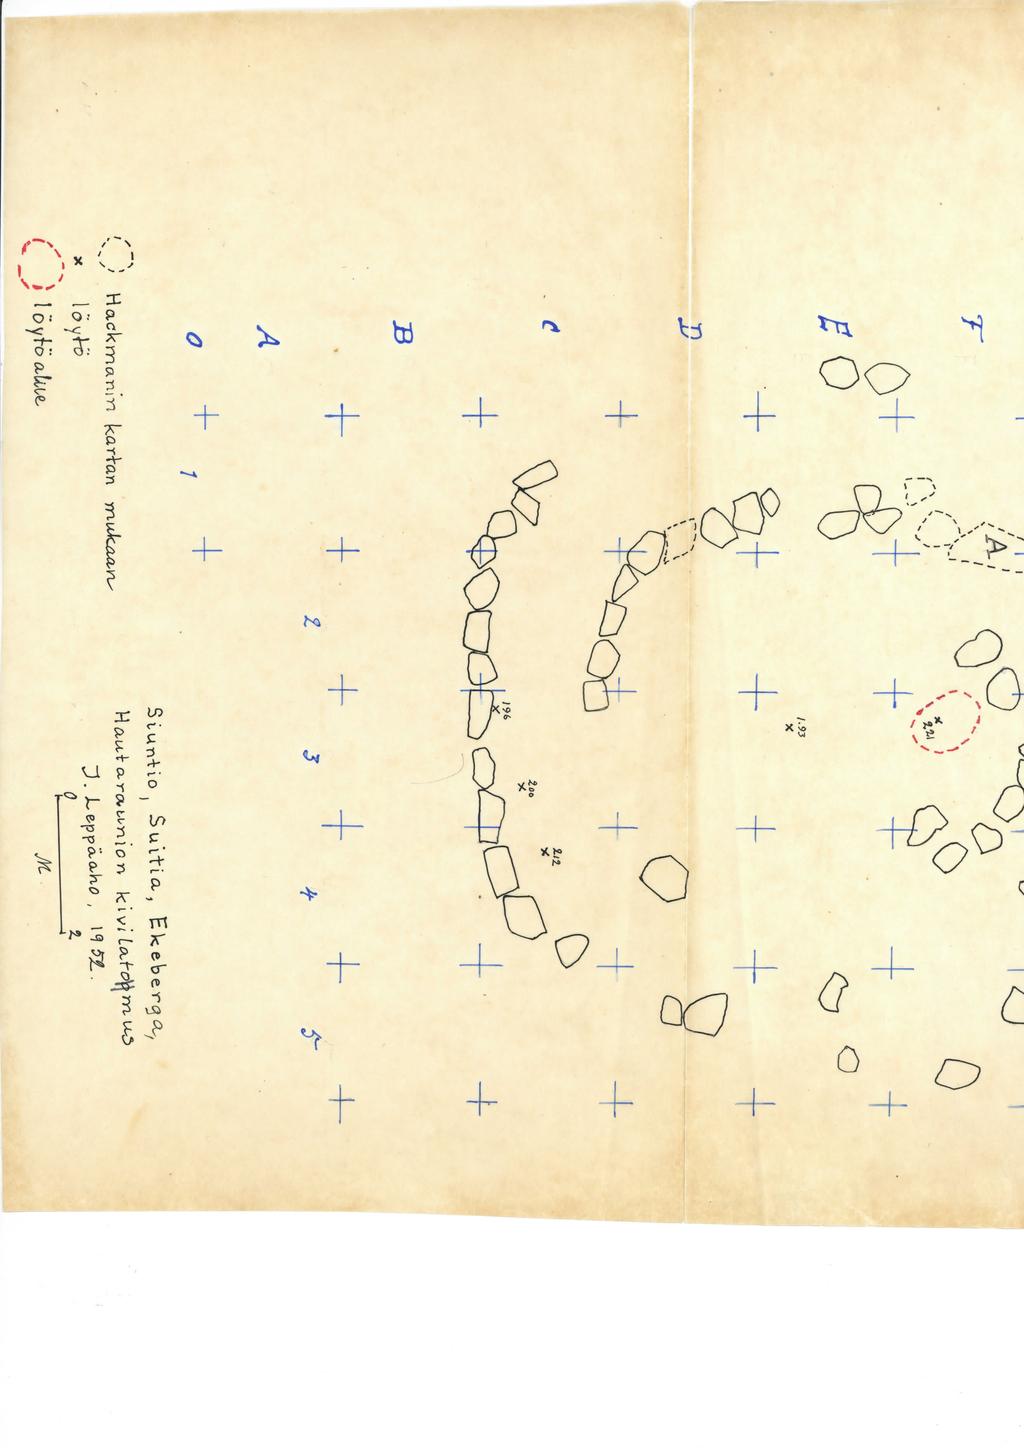 Siuntio, Suitia, Ekeberga,
Hautaraunion kivilatomus
J. Leppäaho, 1952.
0 2
M.
Hackmanin kartan mukaan
x löytö
löytöalue
0 1 2 3 4 5
A
B
C
D
E
F
A
196
200
212
1.93
221